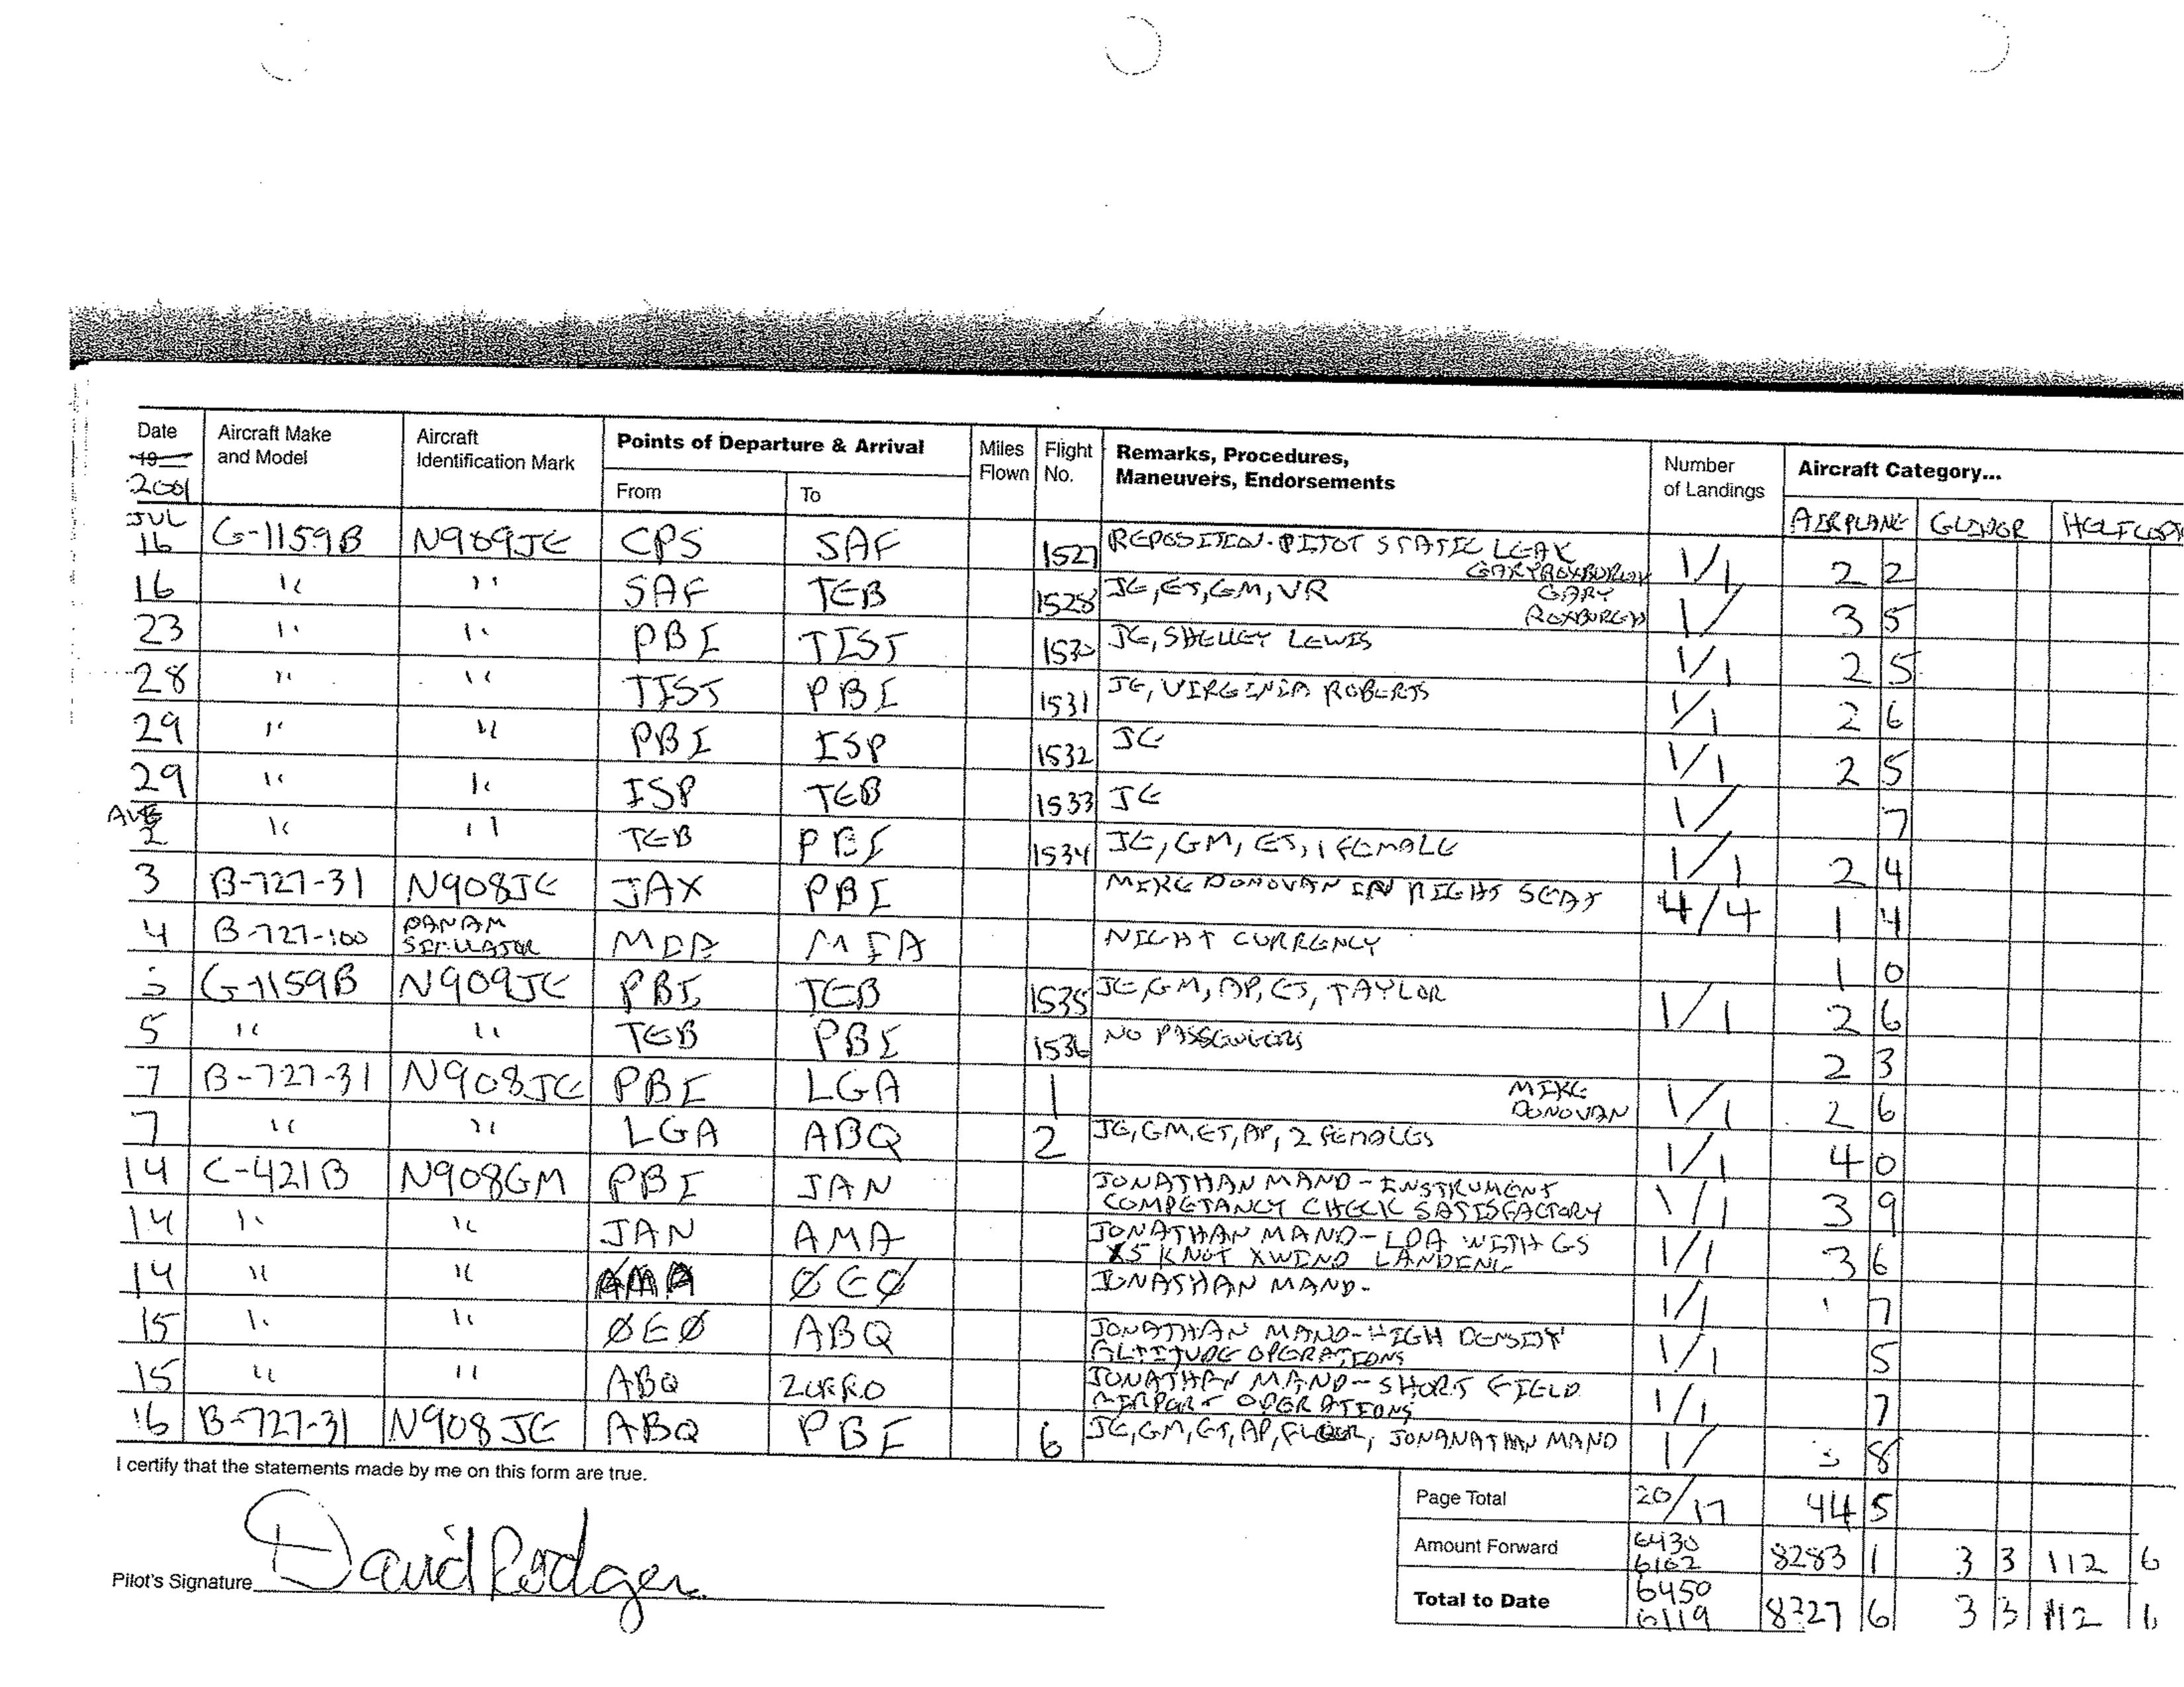 Date Aircraft Make and Model Aircraft Identification Mark Points of Departure & Arrival Miles Flown Flight No. Remarks, Procedures, Maneuvers, Endorsements Number of Landings Aircraft Category...
19 2001 From To AIRPLANE GLIDER
JUL 16 G-1159B N909JE CPS SAF 1527 REPOSITION-PITOT STATIC LEAK GARY ROXBURGH 1/1 2 2
16 " " SAF TEB 1528 JE, ET, GM, VR GARY ROXBURGH 1/ 3 5
23 " " PBI TIST 1530 JE, SHELLEY LEWIS 1/1 2 5
28 " " TIST PBI 1531 JE, VIRGINIA ROBERTS 1/1 2 6
29 " " PBI ISP 1532 JE 1/1 2 5
29 " " ISP TEB 1533 JE 1/ 7
AUG 2 " " TEB PBI 1534 JE, GM, ET, 1 FEMALE 1/1 2 4
3 B-727-31 N908JE JAX PBI MIKE DONOVAN IN RIGHT SEAT 4/4 1 4
4 B-727-100 PANAM SIMULATOR MIA MIA NIGHT CURRENCY 1 0
5 G-1159B N909JE PBI TEB 1535 JE, GM, AP, ET, TAYLOR 1/1 2 6
5 " " TEB PBI 1536 NO PASSENGERS 2 3
7 B-727-31 N908JE PBI LGA 1 MIKE DONOVAN 1/1 2 6
7 " " LGA ABQ 2 JE, GM, ET, AP, 2 FEMALES 1/1 4 0
14 C-421B N908GM PBI JAN JONATHAN MAND-INSTRUMENT COMPETANCY CHECK SATISFACTORY 1/1 3 9
14 " " JAN AMA JONATHAN MAND-LOA WITH GS X5 KNOT XWIND LANDING 1/1 3 6
14 " " AMA ØEØ JONATHAN MAND- 1/1 7
15 " " ØEØ ABQ JONATHAN MAND-HIGH DENSITY ALTITUDE OPERATIONS 1/1 5
15 " " ABQ ZORRO JONATHAN MAND-SHORT FIELD AIRPORT OPERATIONS 1/1 7
16 B-727-31 N908JE ABQ PBI 6 JE, GM, ET, AP, JONANATHAN MAND 1/ 3 8
I certify that the statements made by me on this form are true.
Page Total 20/17 44 5
Amount Forward 6430 6102 8283 1 3 3 112 6
Total to Date 6450 6119 8327 6 3 3 112 6
Pilot's Signature David Rodgers